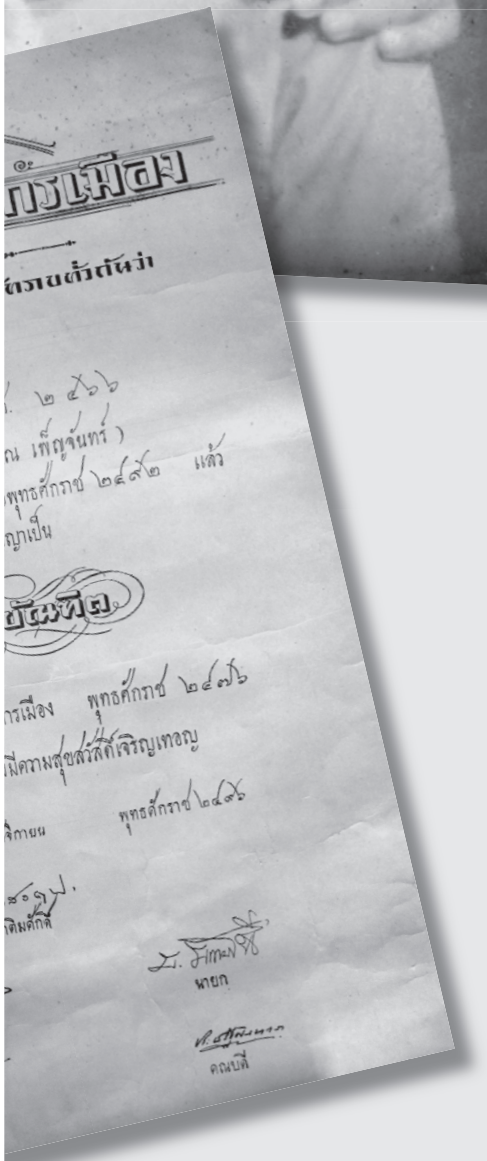 การเมือง
ทราบทั่วกันว่า
ณ เพ็ญจันทร์ )
พุทธศักราช ๒๔๙๒ แล้ว
ญาเป็น
บัณฑิต
การเมือง พุทธศักราช ๒๔๗๖
มีความสุขสวัสดิ์เจริญเทอญ
จิกายน พุทธศักราช ๒๔๙๖
ติมศักดิ์
นายก
คณบดี